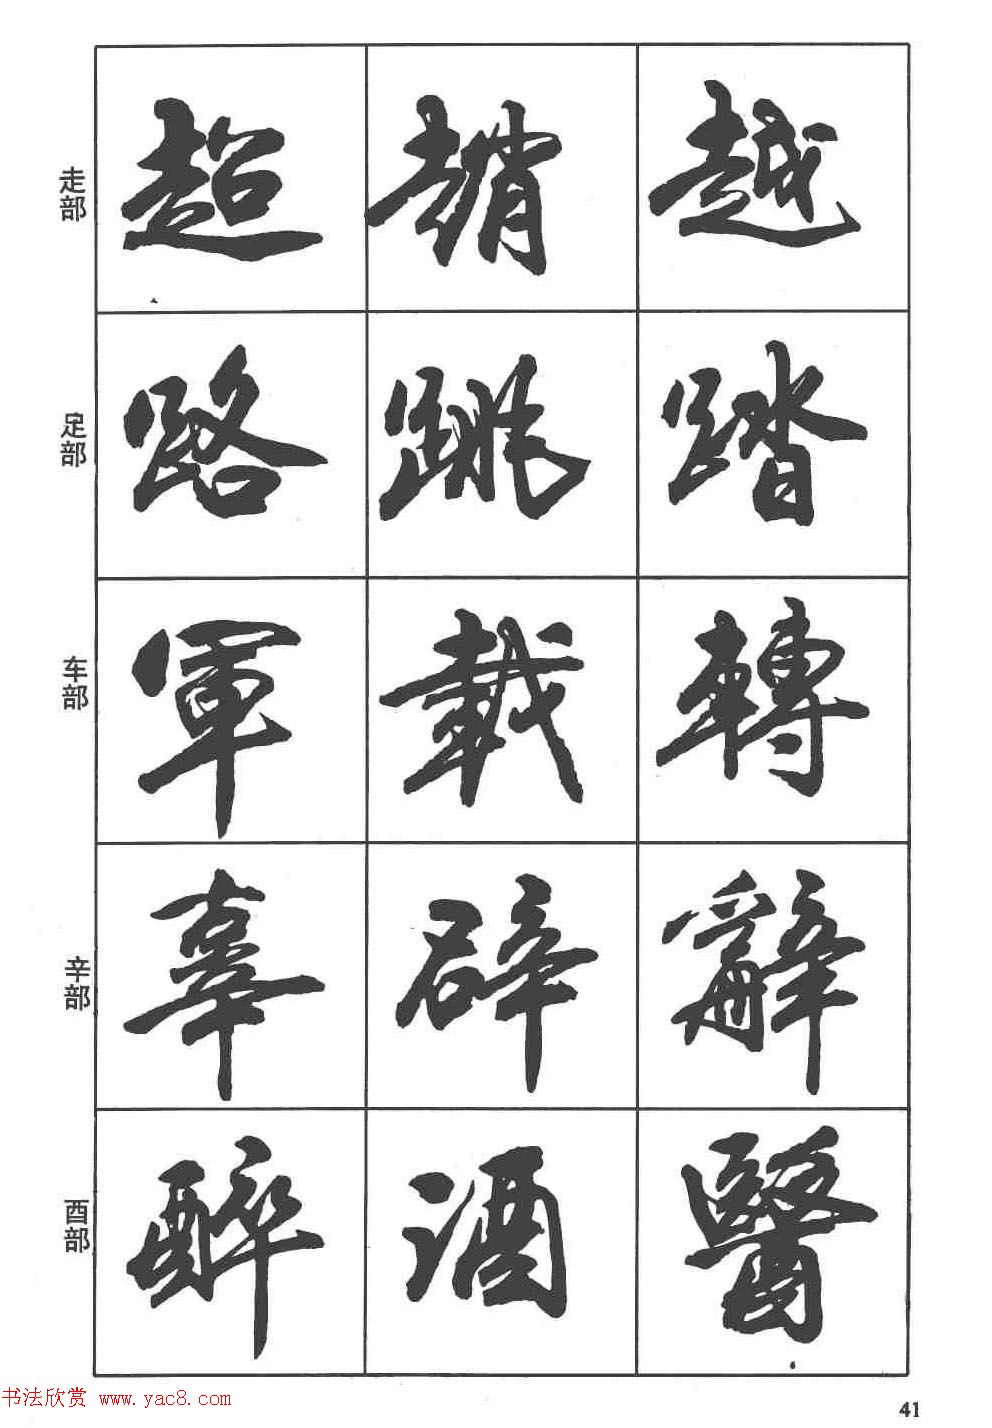 走部 超 趙 越
足部 路 跳 踏
车部 軍 載 轉
辛部 辜 辟 辭
酉部 醉 酒 醫
书法欣赏 www.yac8.com
41